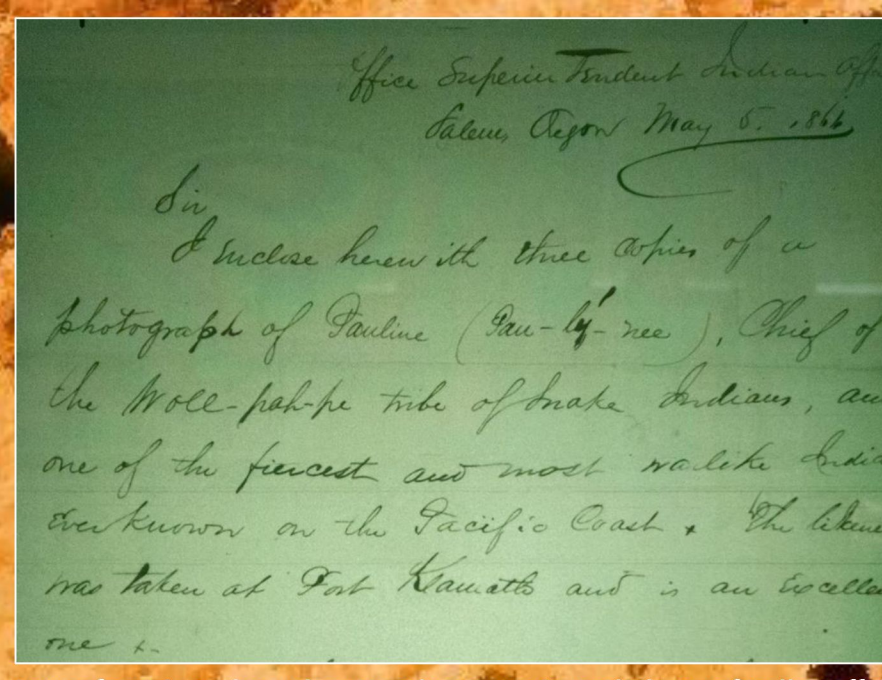 Office Superintendent Indian Aff
Salem, Oregon May 5. 1866
Sir
I Enclose herewith three copies of a
photograph of Pauline (Pau-ly'-nee), Chief of
the Woll-pah-pe tribe of Snake Indians, an
one of the fiercest and most warlike India
Ever Known on the Pacific Coast. The liken
was taken at Fort Klamath and is an Excelle
one